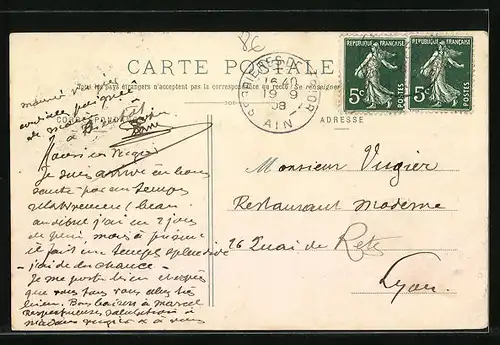 86
CARTE POSTALE
Tous les pays étrangers n'acceptent pas la correspondance au recto. Se renseigner
CORRESPONDANCE
ADRESSE
16 40
19 9
08
AIN
REPUBLIQUE FRANÇAISE
5c
POSTES
REPUBLIQUE FRANÇAISE
5c
POSTES
Monsieur Vugier
Restaurant Moderne
26 Quai de Retz
Lyon
Je suis arrivé en bon
santé par un temps
relativement beau
au début j'ai eu 2 jours
de pluie, mais à présent
il fait un temps splendide
j'ai de la chance
Je me porte bien j'espère
que vous tous vous allez très
bien. Bons baisers à Marcel
respectueuses salutations à
Madame Vugier & à vous